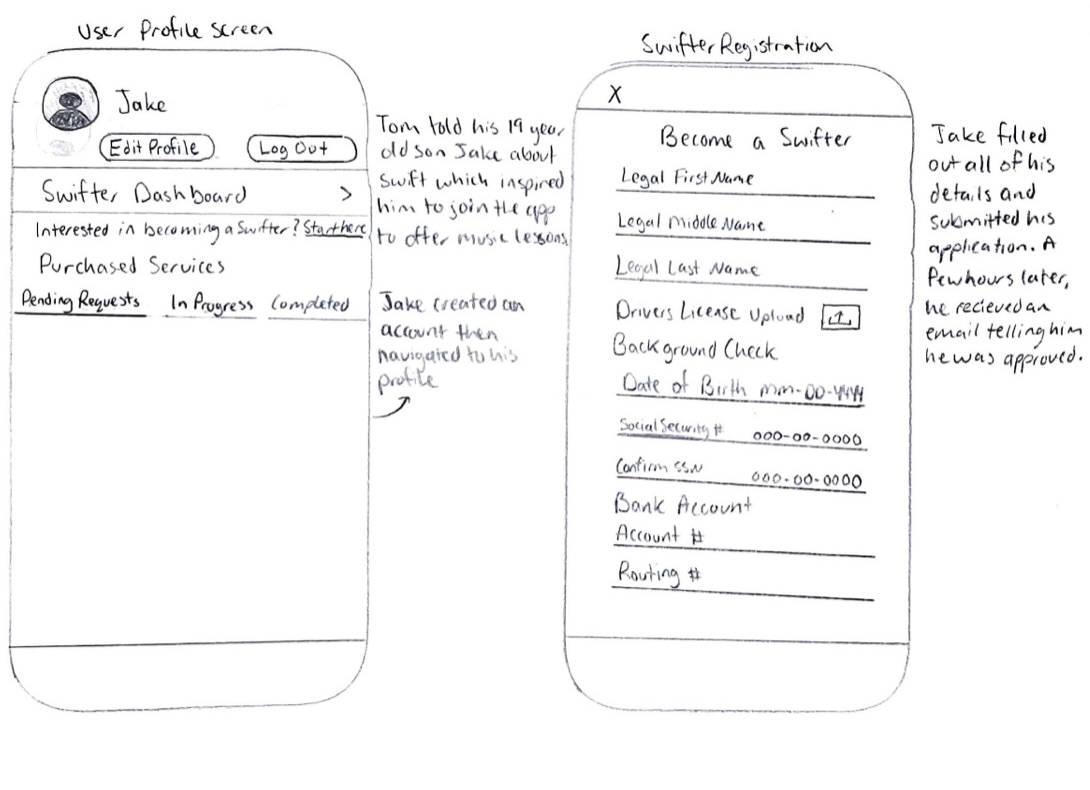 User Profile Screen
Jake
Edit Profile
Log Out
Swifter Dashboard >
Interested in becoming a Swifter? Start here
Purchased Services
Pending Requests In Progress Completed
Tom told his 19 year
old son Jake about
Swift which inspired
him to join the app
to offer music lessons.
Jake created an
account then
navigated to his
profile
Swifter Registration
X
Become a Swifter
Legal First Name
Legal Middle Name
Legal Last Name
Drivers License Upload
Background Check
Date of Birth mm-DD-YYYY
Social Security # 000-00-0000
Confirm SSN 000-00-0000
Bank Account
Account #
Routing #
Jake filled
out all of his
details and
submitted his
application. A
few hours later,
he recieved an
email telling him
he was approved.